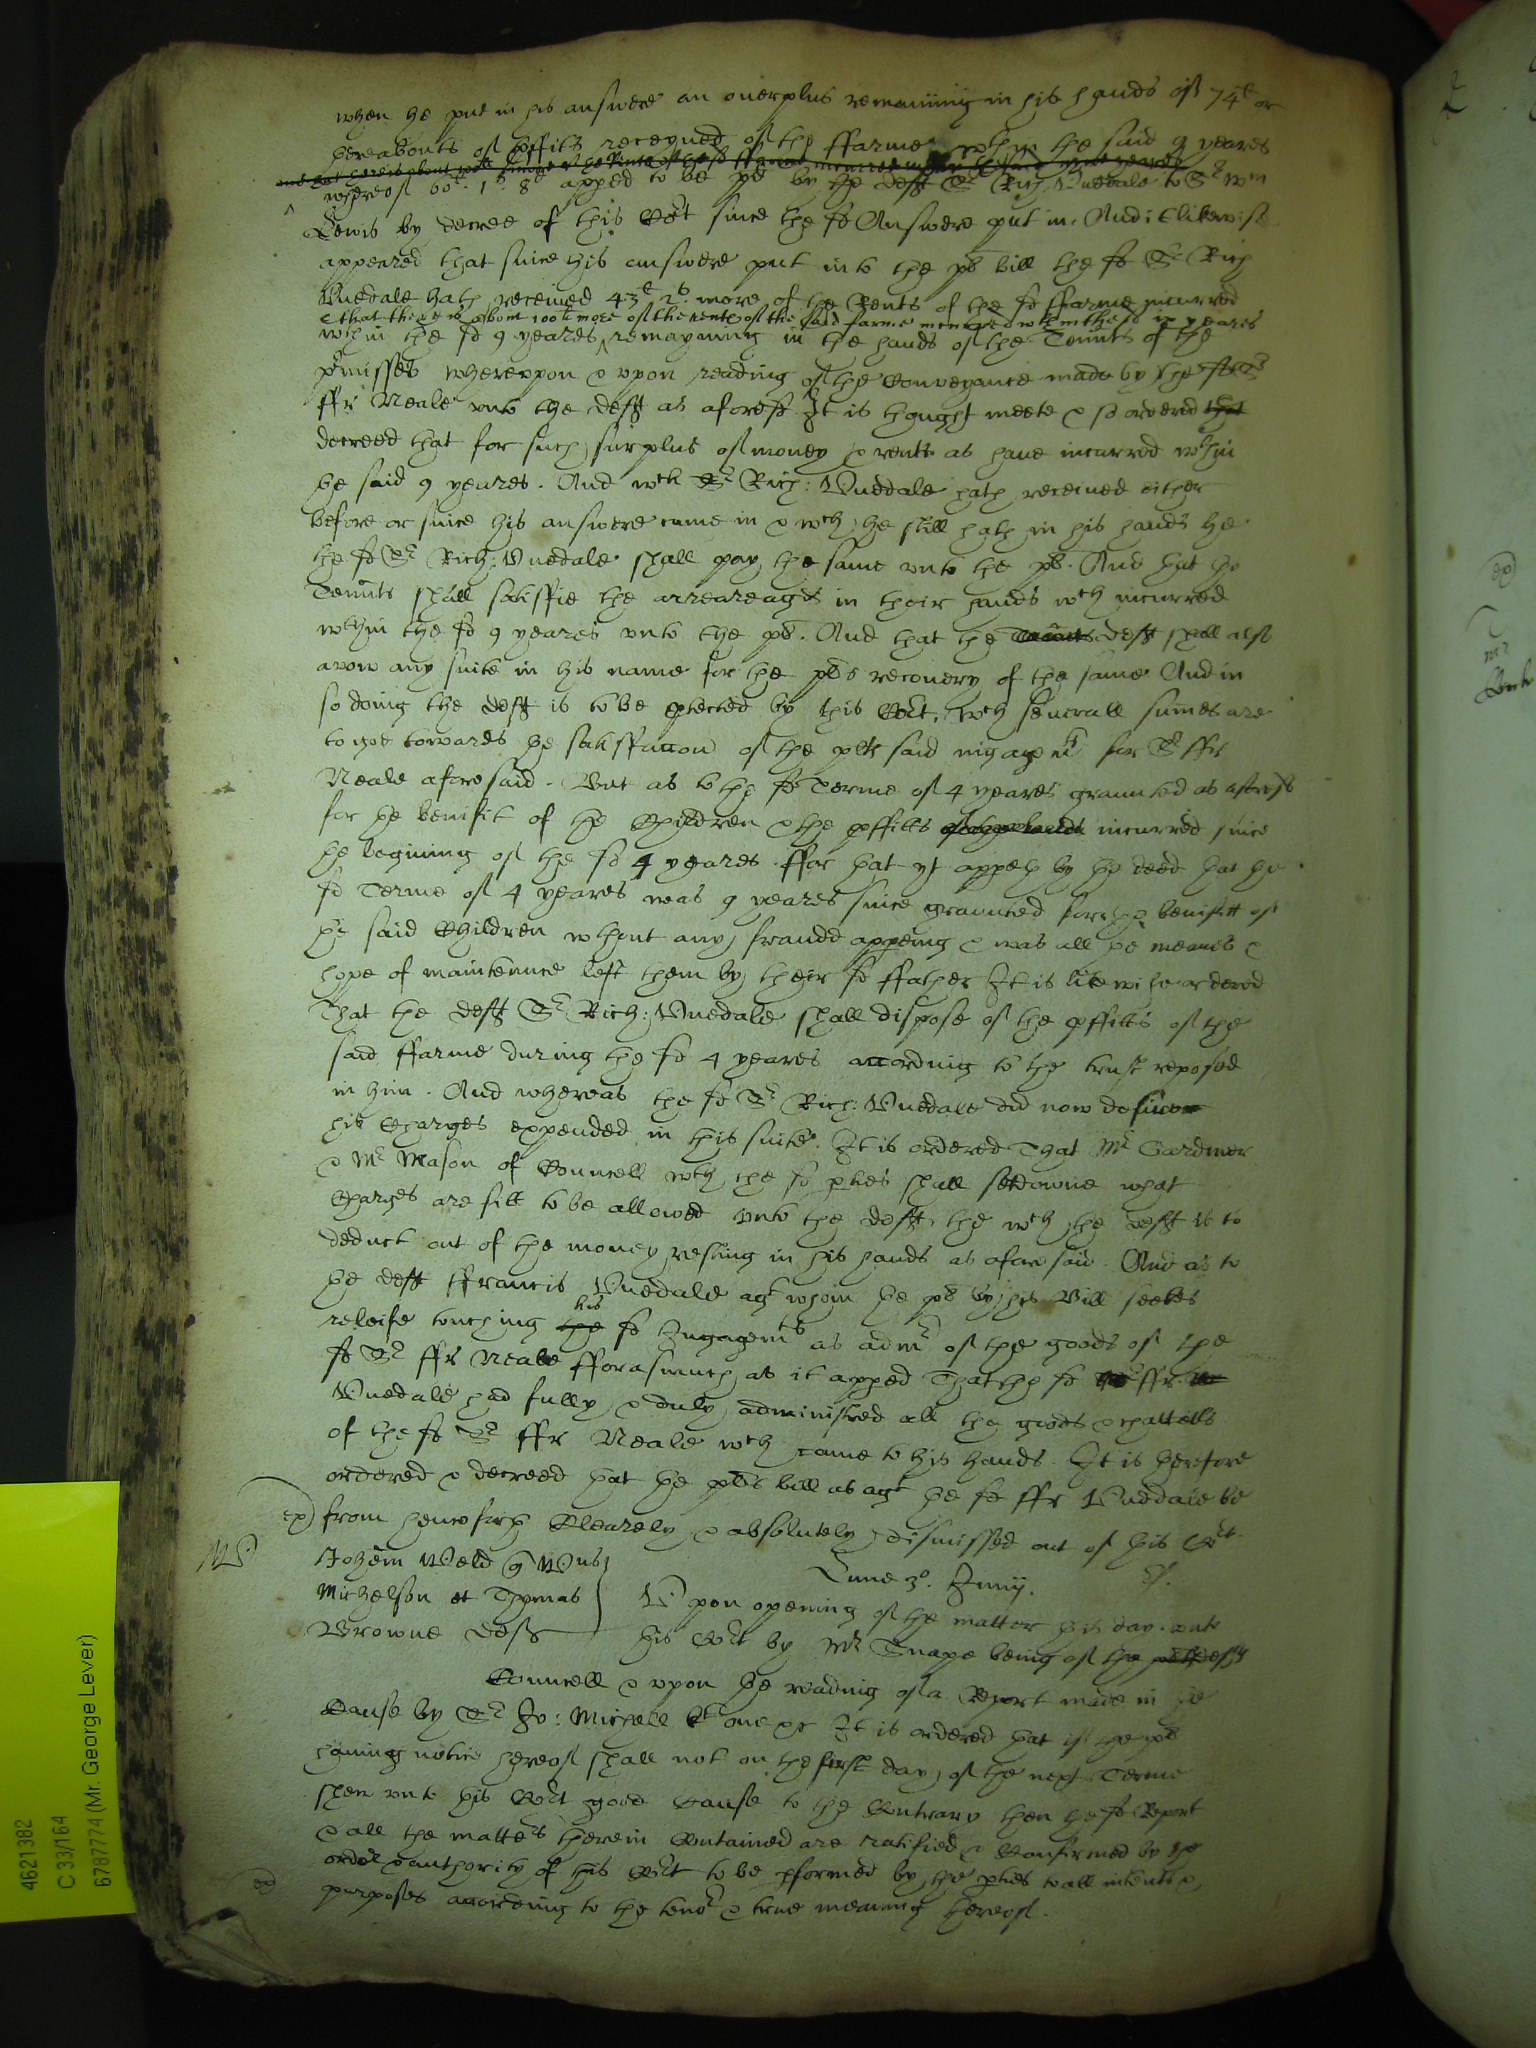 when he put in his answere an overplus remaining in his hands of 74l or
thereabouts of pffitts receyued of the ffarme wthin the said 9 yeares
whereof 60l. 1s. 8d apped to be pd by the defft Sr Rich Vuedale to Sr Wm
Lewis by decree of this Cort since the sd Answere put in. And it likewise
appeared that since his answere put into the plts bill the sd Sr Rich
Vuedale hath received 43l 2s more of the Rents of the sd ffarme incurred
& that there is about 100l more of the rents of the said farme incurred wthin the sd ix yeares
wthin the sd 9 yeares remayning in the hands of the Tennts of the
pmisses whereupon & vpon reading of the Conveyance made by the sd Sr
ffr Neale vnto the defft as aforesd It is thought meete & so ordered that
decreed that for such surplus of money & rents as haue incurred wthin
the said 9 yeares. And wch Sr Rich: Vuedale hath received either
before or since his answere came in & wch he still hath in his hands he
the sd Sr Rich: Vuedale shall pay the same vnto the plt. And that the
Tennts shall satisfie the arrearages in their hands wch incurred
wthin the sd 9 yeares vnto the plt. And that the defft shall also
avow any suite in his name for the plts recouery of the same And in
so doing the defft is to be ptected by this Cort, wch seuerall sumes are
to goe towards the satisfaccon of the plts said ingagemt for Sr ffr
Neale aforesaid. But as to the sd Terme of 4 yeares graunted as aforesd
for the benifit of the Children & the pffitts incurred since
the begining of the sd 4 yeares. ffor that yt appeth by the deed that the
sd Terme of 4 yeares was 9 yeares since graunted for the benifitt of
the said Children wthout any fraude appeing & was all the meanes &
hope of maintennce left them by their sd ffather It is likewise ordered
That the defft Sr Rich: Vuedale shall dispose of the pffitts of the
said ffarme during the sd 4 yeares according to the trust reposed
in him. And whereas the sd Sr Rich: Vuedale did now desire
his Charges expended in this suite. It is ordered That Mr Gardiner
& Mr Mason of Councell wth the sd pties shall sett downe what
Charges are fitt to be allowed vnto the defft, the wch the defft is to
deduct out of the money resting in his hands as aforesaid. And as to
the defft ffrancis Vuedale agt whom the plt by his Bill seekes
releife touching the his sd Ingagemts as admr of the goods of the
sd Sr ffr Neale fforasmuch as it apped That the sd ffr
Vuedale had fully & duly administred all the goods & chattells
of the sd Sr ffr Neale wch came to his hands. It is therefore
ordered & decreed that the plts bill as agt the sd ffr Vuedale be
from henceforth Clearely & absolutely dismissed out of this Cort.
Johem Weld
Michelson et Thomas
Browne defts
Lune 3o. Junij.
Vpon opening of the matter this day vnto
this Cort by Mr Snape being of the defts
Councell & vpon the reading of a Report made in the
Cause by Sr Jo: Michell kt one &c It is ordered that if the plt
hauing notice hereof shall not on the first day of the next Terme
shew vnto this Cort good Cause to the Contrary then the sd Report
& all the matters therein Contained are ratified & Confirmed by the
order & authority of this Cort to be pformed by the pties to all intents &
purposes according to the tenor & true meaning thereof.
4621382
C 33/164
6787774 (Mr. George Lever)